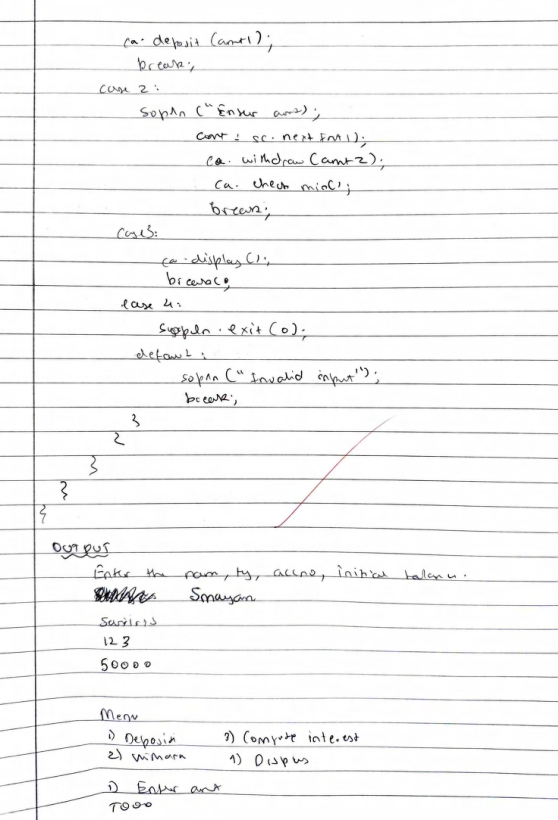 ca. deposit (amt1);
break;
case 2:
sopln ("Enter amt");
amt = sc. next Int();
ca. withdraw (amt2);
ca. check min();
break;
case3:
ca. display();
break;
case 4:
. exit (0);
default :
sopln ("Invalid input");
break;
}
}
}
}
}
OUTPUT
Enter the nam, ty, accno, initial balance.
Smayan
Savings
123
50000
Menu
1) Deposit 3) Compute interest
2) 4)
1) Enter amt